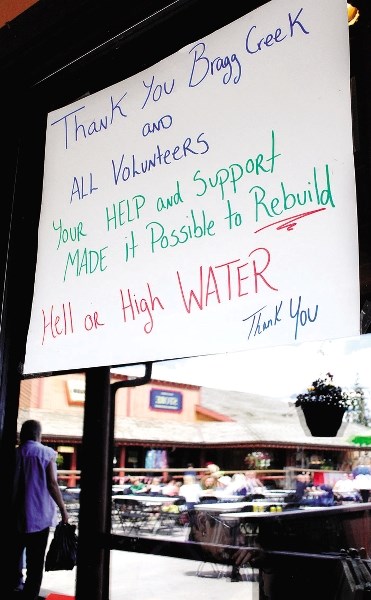 Thank You Bragg Creek
and
ALL Volunteers
Your HELP and Support
MADE it Possible to Rebuild
Hell or High WATER
Thank You